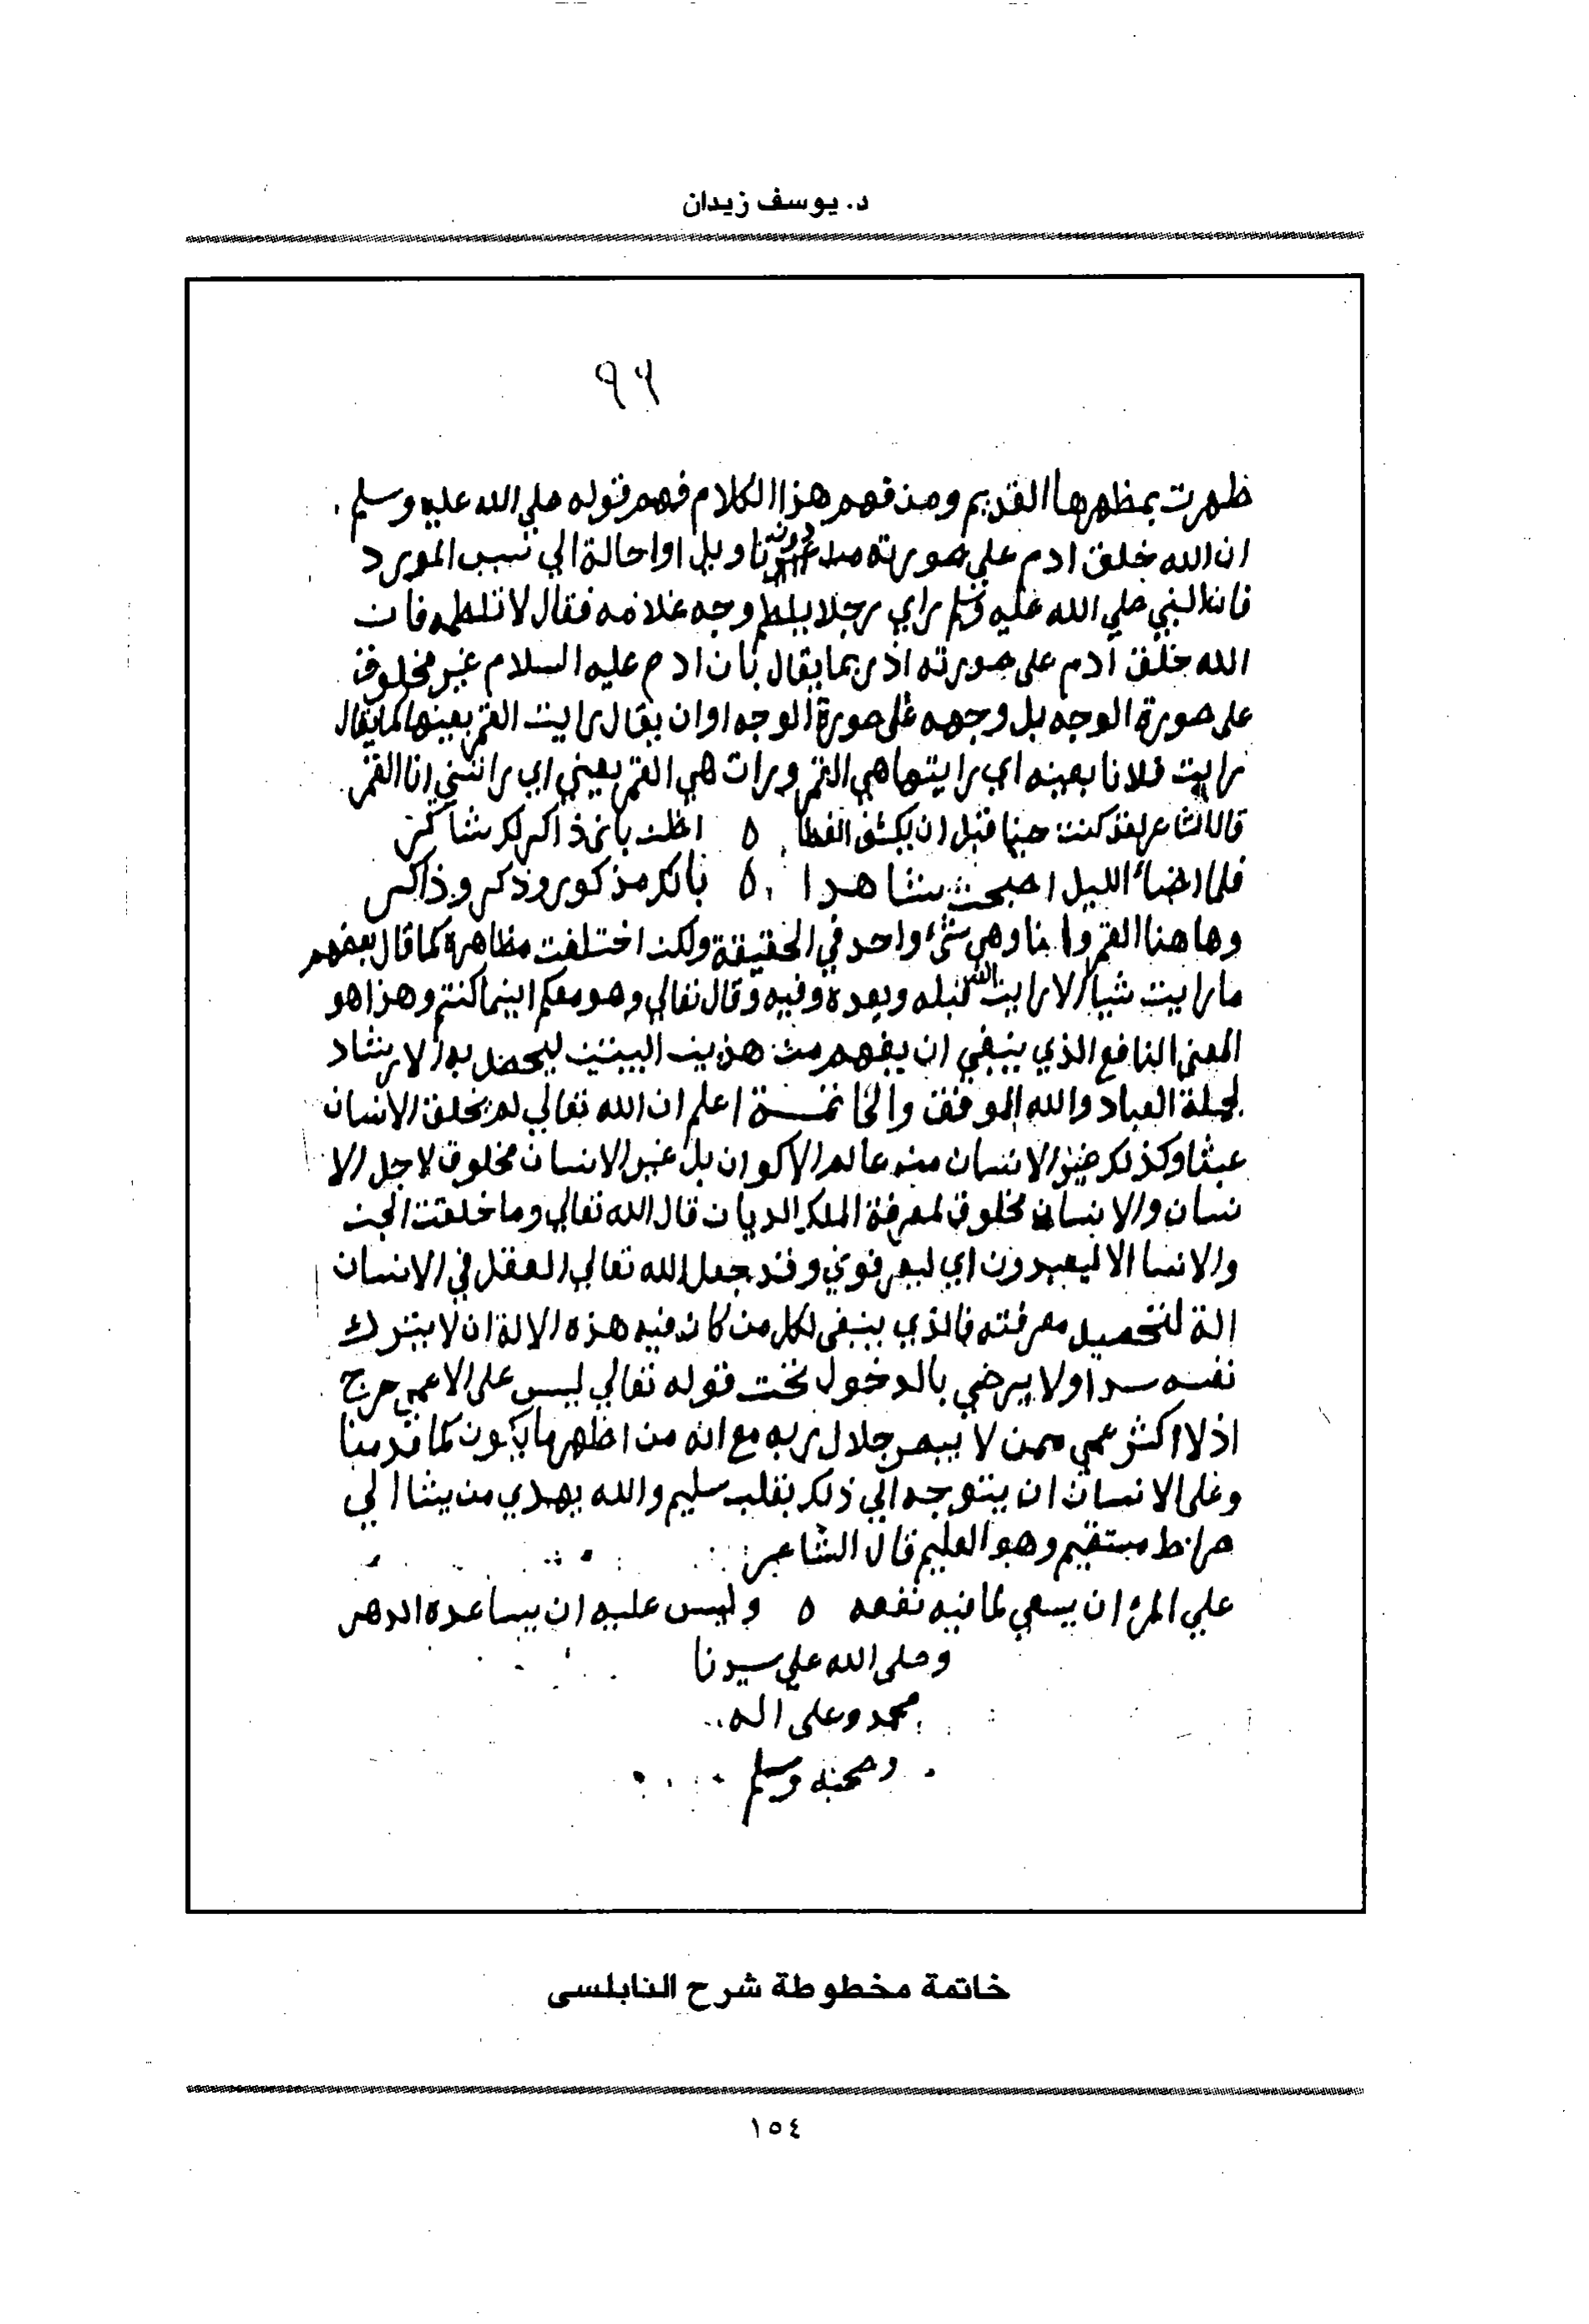 د. يوسف زيدان
٩٦
ظهرت بمظهرها القديم ومن فهم هذا الكلام فهم قوله صلي الله عليه وسلم
ان الله خلق ادم علي صورته من دونه تاويل او احالة الي سبب المورد
فان النبي صلي الله عليه وسلم راي رجلا يلطم وجه غلامه فقال لا تلطمه فان
الله خلق ادم على صورته اذ ربما يقال بان ادم عليه السلام غير مخلوق
على صورة الوجه بل وجهه على صورة الوجه او ان يقال رايت القمر بعينها كما يقال
رايت فلانا بعينه اي رايتها هي القمر ورات هي القمر بعيني اي راتني انا القمر
قال الشاعر لقد كنت حينا قبل ان يكشف الغطا ٥ اظن باني ذاكر لك شاكر
فلما اضاء الليل اصبحت شاهدا ٥ بانك مذكور وذكر وذاكر
وهاهنا القمر وانا وهي شيء واحد في الحقيقة ولكن اختلفت مظاهره كما قال بعضهم
ما رايت شيا الا رايت الله قبله وبعده وفيه وقال تعالي وهو معكم اينما كنتم وهذا هو
المعنى النافع الذي ينبغي ان يفهم من هذين البيتين ليحصل به الارشاد
لجملة العباد والله الموفق والخاتمـة اعلم ان الله تعالي لم يخلق الانسان
عبثا وكذلك غير الانسان من عالم الاكوان بل غير الانسان مخلوق لاجل الا
نسان والانسان مخلوق لمعرفة الملك الديان قال الله تعالي وما خلقت الجن
والانس الا ليعبدون اي ليعرفوني وقد جعل الله تعالي العقل في الانسان
الة لتحصيل معرفته فالذي ينبغي لكل من كان فيه هذه الالة ان لا يترك
نفسه سدا ولا يرضي بالدخول تحت قوله تعالي ليس على الاعمي حرج
اذ لا اكثر عمي ممن لا يبصر جلال ربه مع انه من اظهر ما يكون كما قدمنا
وعلى الانسان ان يتوجه الي ذلك بقلب سليم والله يهدي من يشا الي
صراط مستقيم وهو العليم قال الشاعر
علي المرء ان يسعي لما فيه نفعه ٥ وليس عليه ان يساعده الدهر
وصلى الله علي سيدنا
محمد وعلى اله
وصحبه وسلم
خاتمة مخطوطة شرح النابلسى
١٥٤